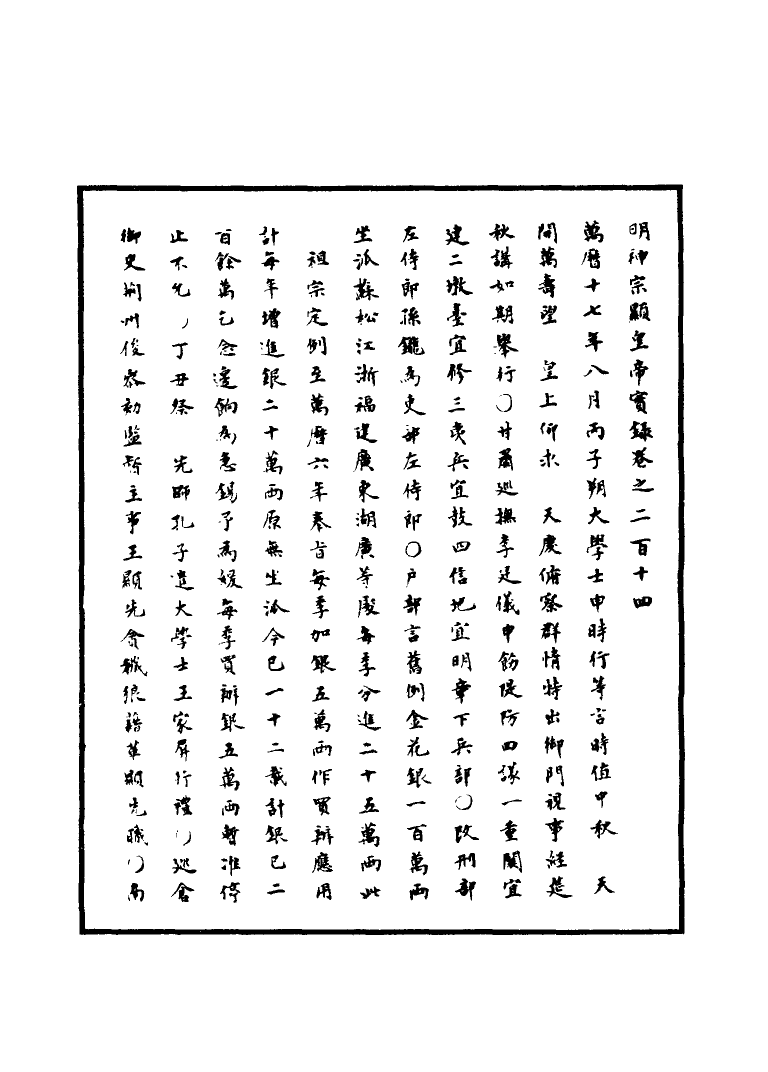 明神宗顯皇帝實錄卷之二百十四
萬曆十七年八月丙子朔大學士申時行等言時值中秋　天
開萬壽望　皇上仰承　天慶俯察群情特出御門視事經筵
秋講如期舉行○甘肅巡撫李廷儀申飭隄防四議一重關宜
建二墩臺宜修三夷兵宜鼓四信地宜明章下兵部○改刑部
左侍郎孫鑨為吏部左侍郎○戶部言舊例金花銀一百萬兩
坐派蘇松江浙福建廣東湖廣等處每季分進二十五萬兩此
祖宗定例至萬曆六年奉旨每季加銀五萬兩作買辦應用
計每年增進銀二十萬兩原無坐派今已一十二載計銀已二
百餘萬乞念邊餉為急錫予為緩每季買辦銀五萬兩暫准停
止不允○丁丑祭　先師孔子遣大學士王家屏行禮○巡倉
御史荊州俊參初監督主事王顯先貪穢狼藉革顯先職○